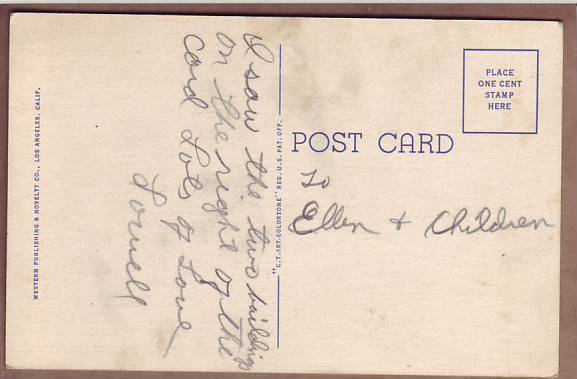 I saw the two buildings
on the right of the
card Lots of Love
Lowell
WESTERN PUBLISHING & NOVELTY CO., LOS ANGELES, CALIF.
"C.T. ART-COLORTONE" REG. U.S. PAT. OFF.
POST CARD
PLACE
ONE CENT
STAMP
HERE
To
Ellen + Children